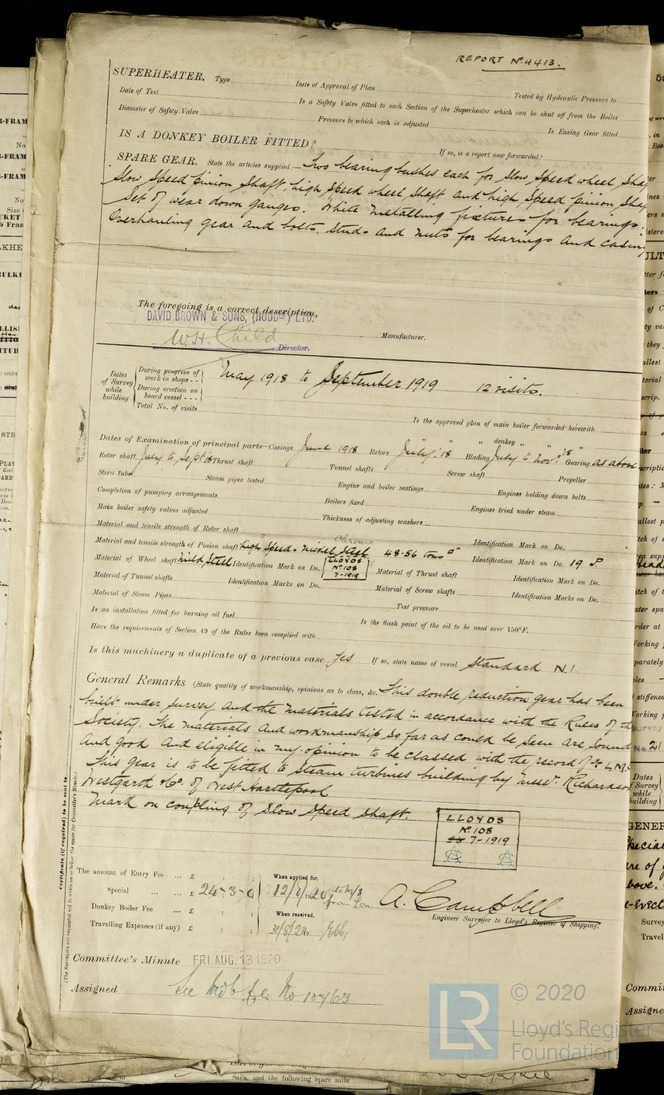 REPORT No. 4413.
SUPERHEATER. Type
Date of Approval of Plan
Tested by Hydraulic Pressure to
Date of Test
Is a Safety Valve fitted to each Section of the Superheater which can be shut off from the Boiler
Diameter of Safety Valve
Pressure to which each is adjusted
Is Easing Gear fitted
IS A DONKEY BOILER FITTED?
If so, is a report now forwarded?
SPARE GEAR. State the articles supplied:— Two bearing bushes each for slow speed wheel shaf
slow speed pinion shaft, high speed wheel shaft and high speed pinion shaf
Set of wear down gauges. White metalling fixtures for bearings.
Overhauling gear and bolts, studs and nuts for bearings and casin
The foregoing is a correct description,
DAVID BROWN & SONS, (HUDD) LTD.
W.H. Child
Director.
Manufacturer.
Dates of Survey while building
During progress of work in shops - -
During erection on board vessel - - -
Total No. of visits
May 1918 to September 1919 12 visits.
Is the approved plan of main boiler forwarded herewith
" " donkey " "
Dates of Examination of principal parts—Casings June 1918 Rotors July 18 Blading July to Nov. 18 Gearing as above
Rotor shaft July to Sept 18 Thrust shaft Tunnel shafts Screw shaft Propeller
Stern tube Steam pipes tested Engine and boiler seatings Engines holding down bolts
Completion of pumping arrangements Boilers fixed Engines tried under steam
Main boiler safety valves adjusted Thickness of adjusting washers
Material and tensile strength of Rotor shaft Identification Mark on Do.
Material and tensile strength of Pinion shaft high speed. nickel chrome steel 48.56 tons □" Identification Mark on Do. 19 P
Material of Wheel shaft mild steel Identification Mark on Do. LLOYDS No 108 7-1919 Material of Thrust shaft Identification Mark on Do.
Material of Tunnel shafts Identification Marks on Do. Material of Screw shafts Identification Marks on Do.
Material of Steam Pipes Test pressure
Is an installation fitted for burning oil fuel Is the flash point of the oil to be used over 150°F.
Have the requirements of Section 49 of the Rules been complied with
Is this machinery a duplicate of a previous case Yes If so, state name of vessel Standard N.1
General Remarks (State quality of workmanship, opinions as to class, &c. This double reduction gear has been
built under survey and the materials tested in accordance with the Rules of the
Society. The materials and workmanship so far as could be seen are sound
and good and eligible in my opinion to be classed with the record of + L.M.C
This gear is to be fitted to steam turbines building by Messrs. Richardson
Westgarth & Co. of West Hartlepool
Mark on coupling of slow speed shaft.
LLOYDS
No 108
7-1919
Certificate (if required) to be sent to
(The Surveyors are requested not to write on or below the space for Committee's Minute.)
The amount of Entry Fee ... £ : :
Special ... £ 24-3-0
Donkey Boiler Fee ... £ : :
Travelling Expenses (if any) £ : :
When applied for.
When received.
A. Campbell
Engineer Surveyor to Lloyd's Register of Shipping.
Committee's Minute FRI. AUG. 13 1920
Assigned
© 2020
LR Lloyd's Register
Foundation
Sails, and the following spare sails